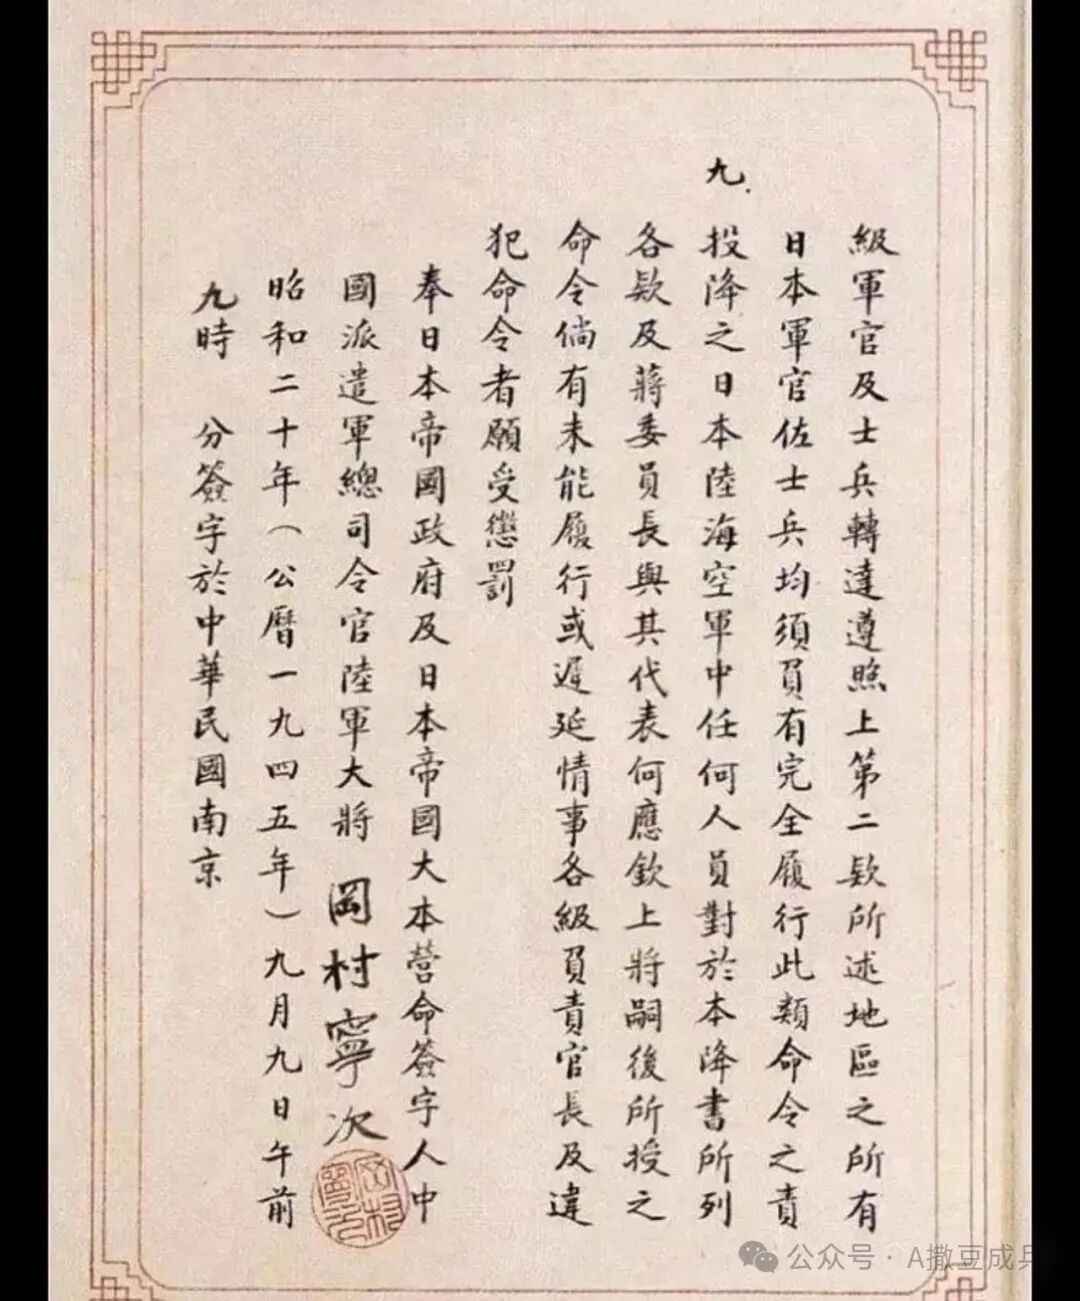 級軍官及士兵轉達遵照上第二欵所述地區之所有
日本軍官佐士兵均須負有完全履行此類命令之責
九.
投降之日本陸海空軍中任何人員對於本降書所列
各欵及蔣委員長與其代表何應欽上將嗣後所授之
命令倘有未能履行或遲延情事各級負責官長及違
犯命令者願受懲罰
奉日本帝國政府及日本帝國大本營命簽字人中
國派遣軍總司令官陸軍大將 岡村寧次
昭和二十年(公曆一九四五年)九月九日午前
九時 分簽字於中華民國南京
岡村寧次
公众号 · A撒豆成兵